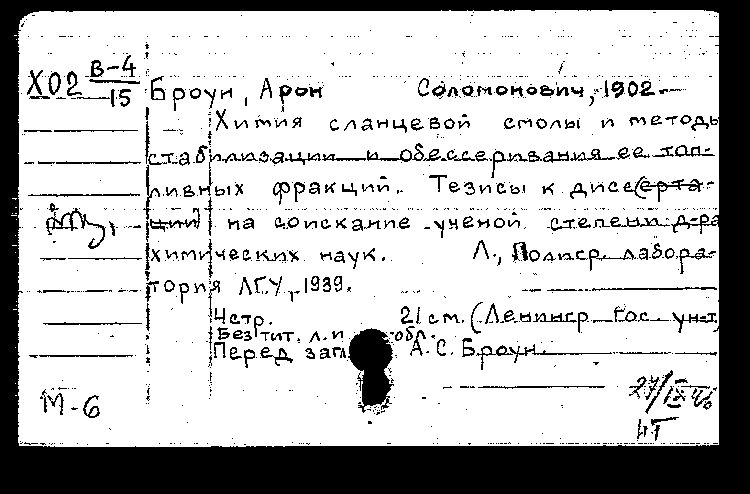 Х02 В-4/15
Броун, Арон Соломонович, 1902-
Химия сланцевой смолы и методы
стабилизации и обессеривания ее топ-
ливных фракций. Тезисы к диссерта-
ции на соискание ученой степени д-ра
химических наук. Л., Полигр. лабора-
тория ЛГУ, 1939.
4 стр. 21 см. (Ленингр. Гос. ун-т)
Без тит. л. и обл.
Перед загл. А. С. Броун.
М-6
27/IX 46